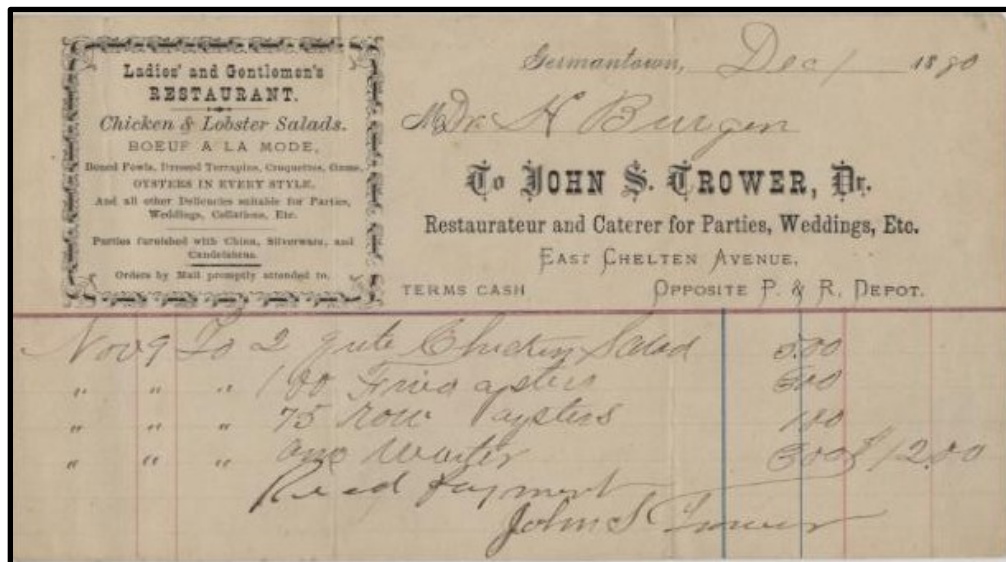 Ladies' and Gentlemen's
RESTAURANT.
Chicken & Lobster Salads.
BOEUF A LA MODE,
Boned Fowls, Dressed Terrapins, Croquettes, Game,
OYSTERS IN EVERY STYLE,
And all other Delicacies suitable for Parties,
Weddings, Collations, Etc.
Parties furnished with China, Silverware, and
Candelabras.
Orders by Mail promptly attended to.
Germantown, Dec 1 1880
M Dr. H Burgen
To JOHN S. TROWER, Dr.
Restaurateur and Caterer for Parties, Weddings, Etc.
EAST CHELTEN AVENUE,
TERMS CASH OPPOSITE P. & R. DEPOT.
Nov 9 To 2 Chicken Salad 5.00
" " " 100 Fried oysters 300
" " " 75 Row oysters 100
" " " one Waiter 300 $12.00
Recd payment
John S Trower